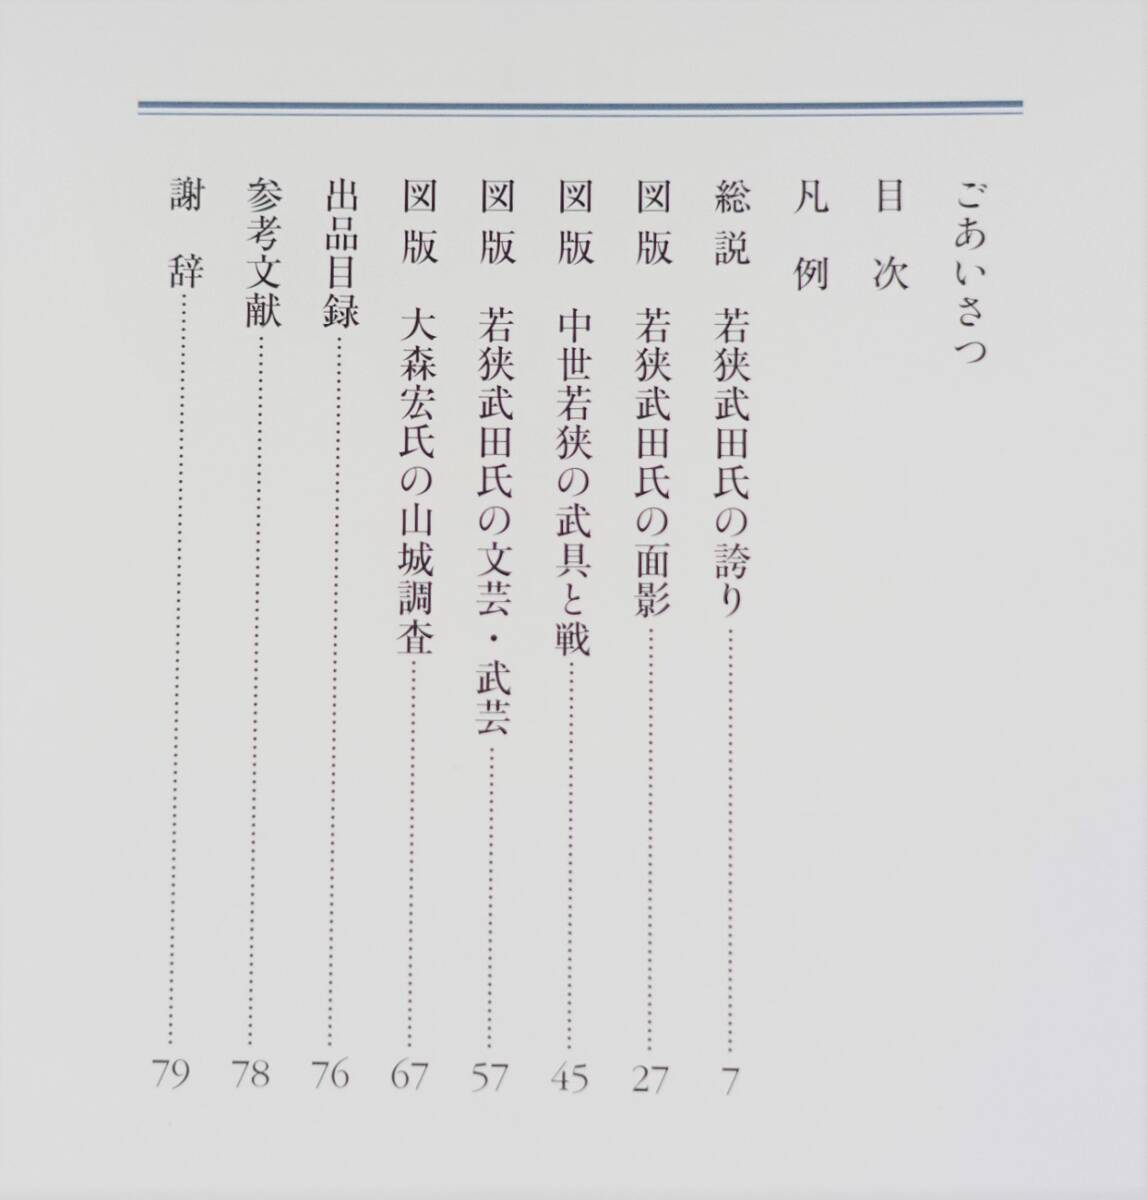 ごあいさつ
目次
凡例
総説 若狭武田氏の誇り……………………7
図版 若狭武田氏の面影……………………27
図版 中世若狭の武具と戦……………………45
図版 若狭武田氏の文芸・武芸……………………57
図版 大森宏氏の山城調査……………………67
出品目録……………………76
参考文献……………………78
謝辞……………………79